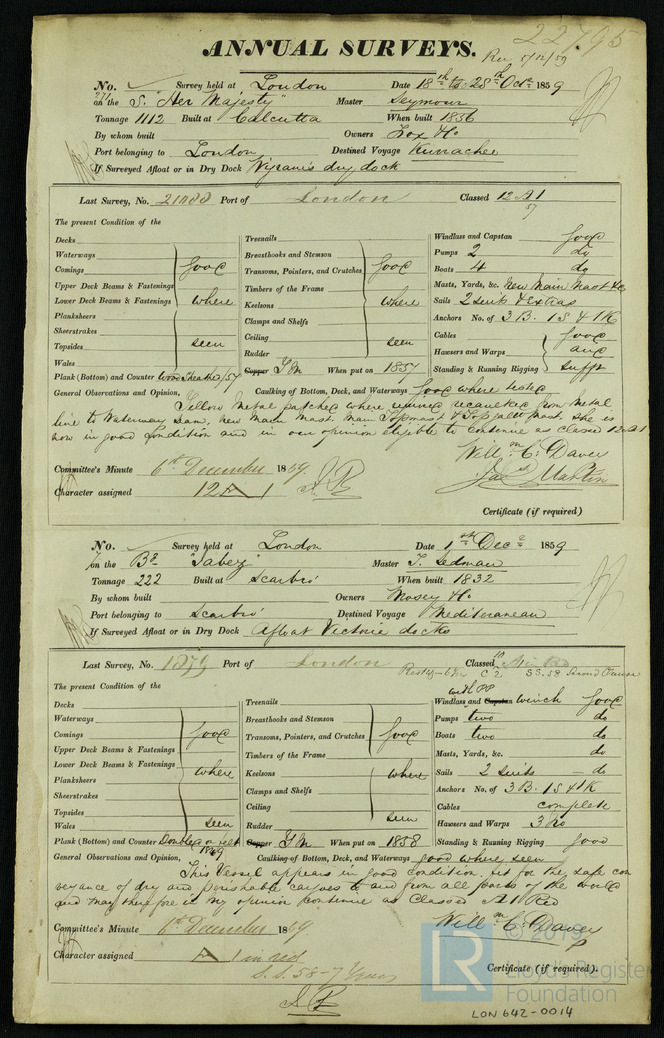 22795
ANNUAL SURVEYS.
Rec 5/12/59
No. Survey held at London Date 18th to 28th Octr 1859
on the S. "Her Majesty" Master Seymour
Tonnage 1112 Built at Calcutta When built 1856
By whom built Owners Fox & Co.
Port belonging to London Destined Voyage Kurrachee
If Surveyed Afloat or in Dry Dock Wigram's dry dock
Last Survey, No. Port of London Classed 12 A 1
57
The present Condition of the
Decks
Waterways
Comings good
Upper Deck Beams & Fastenings
Lower Deck Beams & Fastenings where
Planksheers
Sheerstrakes
Topsides seen
Wales
Plank (Bottom) and Counter Wood Sheathed/57
Treenails
Breasthooks and Stemson
Transoms, Pointers, and Crutches good
Timbers of the Frame
Keelsons where
Clamps and Shelfs
Ceiling seen
Rudder
Copper Y M When put on 1857
Windlass and Capstan good
Pumps 2 do
Boats 4 do
Masts, Yards, &c. New Main Mast &c
Sails 2 suits & extras
Anchors No. of 3 B. 1 S 4 1 K
Cables good
Hawsers and Warps and
Standing & Running Rigging sufft
General Observations and Opinion, Caulking of Bottom, Deck, and Waterways good where tested
Yellow Metal patched where required recaulked from metal
line to Waterway seam, new main mast. main Topmast & Top gallt mast. She is
now in good condition and in our opinion eligible to continue as classed 12 A 1
Willm C. Davey
Jas Martin
Committee's Minute 6th December 1859
Character assigned 12 A 1
Certificate (if required)
No. Survey held at London Date 1st Decr 1859
on the Bk "Jabez" Master T. Sedman
Tonnage 222 Built at Scarbro' When built 1832
By whom built Owners Mosey & Co.
Port belonging to Scarbro' Destined Voyage Mediterranean
If Surveyed Afloat or in Dry Dock Afloat Victoria docks
Last Survey, No. 1879 Port of London Classed A 1 in Red
SS. 58
The present Condition of the
Decks
Waterways
Comings good
Upper Deck Beams & Fastenings
Lower Deck Beams & Fastenings where
Planksheers
Sheerstrakes
Topsides
Wales seen
Plank (Bottom) and Counter Doubled on felt
Treenails
Breasthooks and Stemson
Transoms, Pointers, and Crutches good
Timbers of the Frame
Keelsons where
Clamps and Shelfs
Ceiling
Rudder seen
Copper Y M When put on 1858
Windlass and Capstan winch good
Pumps two do
Boats two do
Masts, Yards, &c. do
Sails 2 suits do
Anchors No. of 3 B. 1 S 4 1 K
Cables complete
Hawsers and Warps 3 No
Standing & Running Rigging good
General Observations and Opinion, Caulking of Bottom, Deck, and Waterways good where seen
This Vessel appears in good condition fit for the safe con
veyance of dry and perishable cargoes to and from all parts of the world
and may therefore in my opinion continue as Classed A 1 Red
Willm C. Davey
Committee's Minute 6th December 1859
Character assigned A 1 in red
S.S. 58-7 Years
Certificate (if required).
LR
© 2019
Lloyd's Register
Foundation
LON 642-0014